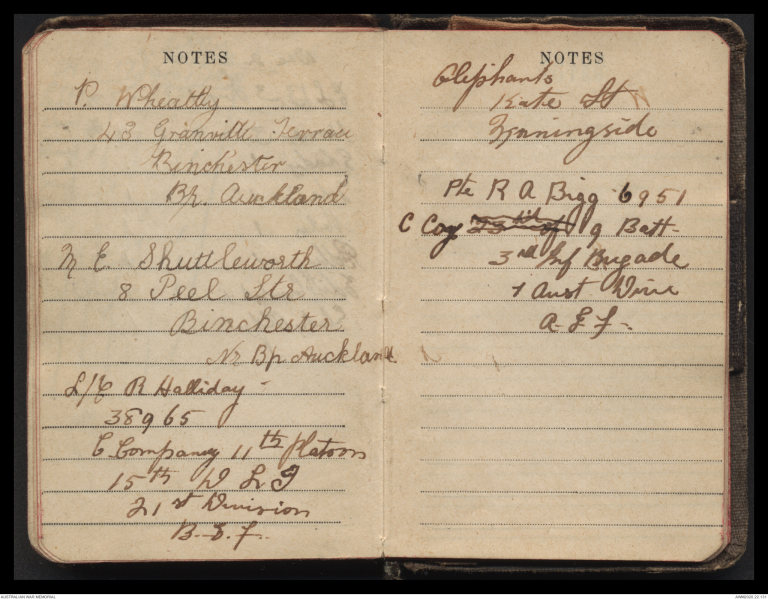 NOTES
P. Wheatly
43 Granville Terrace
Binchester
Bp. Auckland
M E. Shuttleworth
8 Peel Str
Binchester
Nr Bp Auckland
L/C R Halliday -
38965
C Company 11th Platoon
15th D L I
21st Division
B. E. F.
NOTES
Oliphants
Kate St
Pte R A Bigg 6951
C Coy 9 Batt-
3rd Inf Brigade
1 Aust Divn
A. I. F.
AUSTRALIAN WAR MEMORIAL